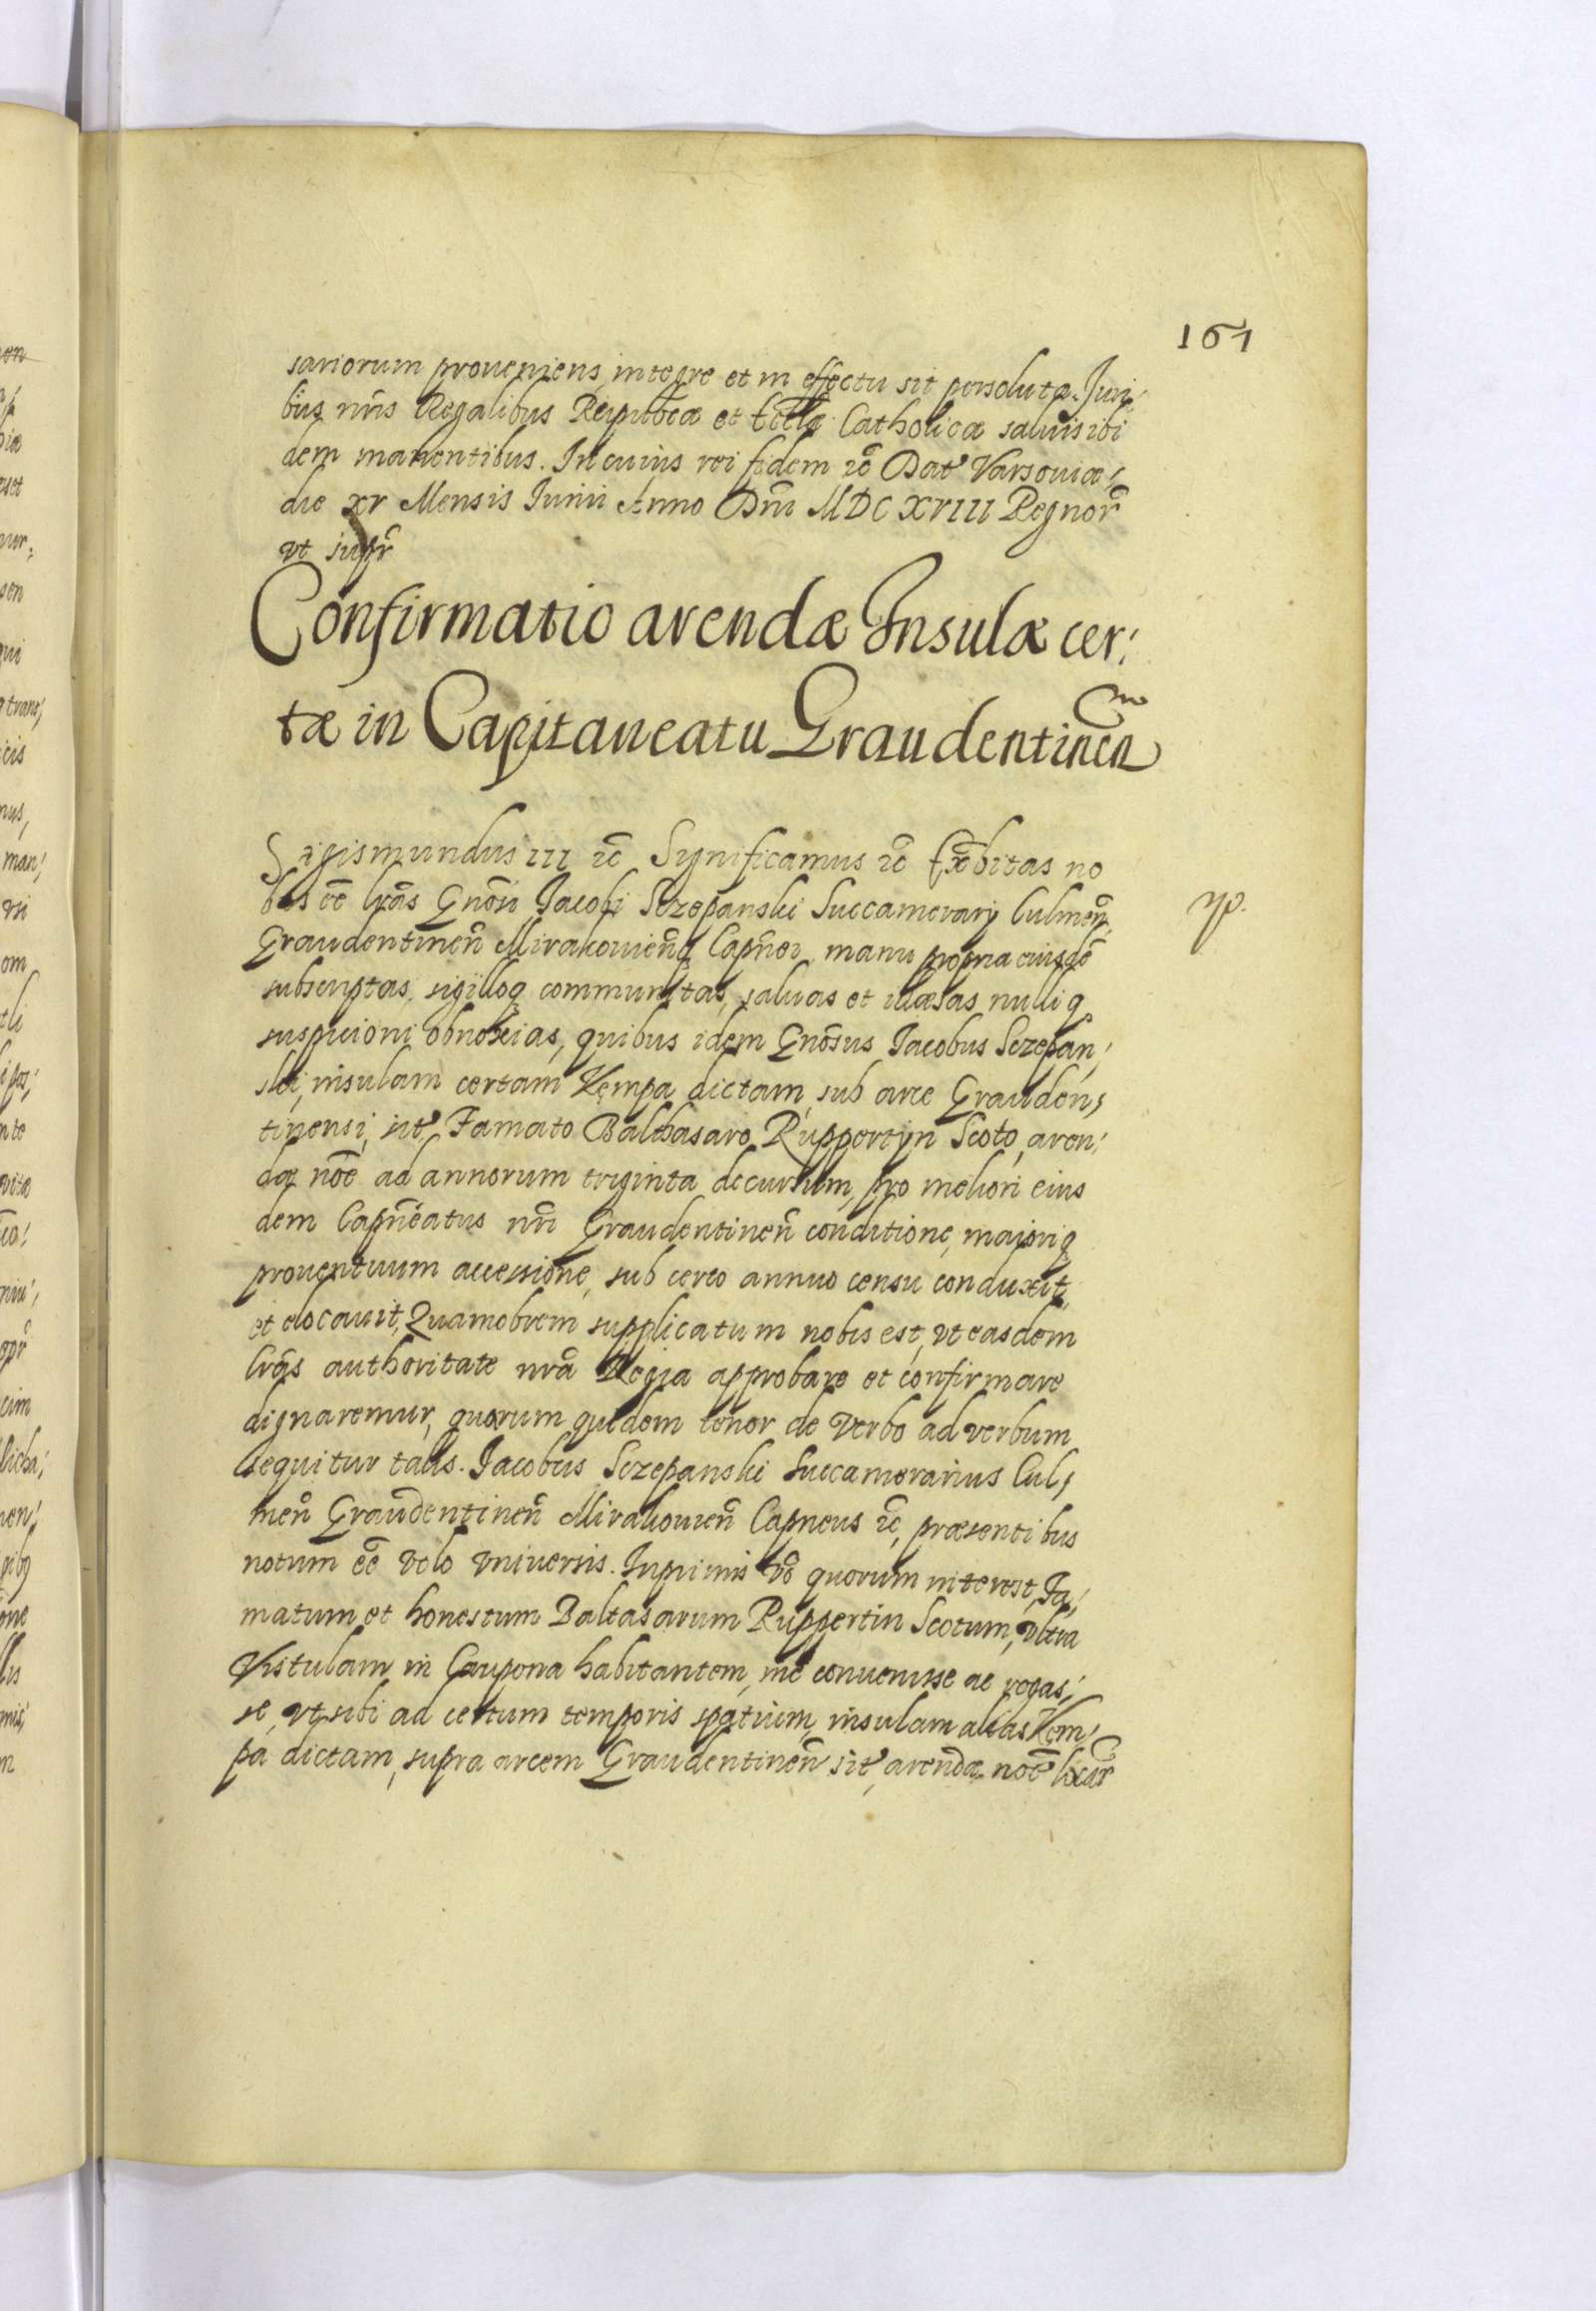 161
sariorum proueniens, integre et in effectu sit persoluta. Juri,
bus nr̃is Regalibus Reipub̃cæ et Eccl̃æ Catholicæ saluis ibi
dem manentibus. In cuius rei fidem ꝛc̃ Dat' Varsouiæ,
die xv Mensis Junii Anno Dñi MDCXVIII Regnor̃
vt supr̃
Confirmatio arendæ Insulæ cer,
tæ in Capitaneatu Graudentineñ
Sigismundus III ꝛc̃ Significamus ꝛc̃ Exhibitas no
bis eẽ lr̃as Gñosi Jacobi Sczepanski Succamerarij Culmeñ,
Graudentineñ Mirakouieñq Capñei manu propria eiusdẽ
subscriptas, sigilloq communitas, saluas et illæsas nulliq
suspicioni obnoxias, quibus idem Gñosus Jacobus Sczepan,
ski, insulam certam Kempa dictam, sub arce Grauden,
tinensi, sit' Famato Balthasaro Ruppertyn Scoto, aren,
dæ noĩe ad annorum triginta decursum, pro meliori eius
dem Capñeatus nr̃i Graudentineñ conditione, maioriq
prouentuum accessione, sub certo annuo censu conduxit,
et elocauit, Quamobrem supplicatum nobis est, vt easdem
lr̃as authoritate nr̃a Regia approbare et confirmare
dignaremur, quarum quidem tenor de verbo ad verbum
sequitur talis. Jacobus Sczepanski Succamerarius Cul,
meñ Graudentineñ Mirakouieñ Capneus ꝛc̃, præsentibus
notum eẽ volo vniuersis. Inprimis vo quorum interest, Fa,
matum et honestum Baltasarum Ruppertin Scotum, vltra
Vistulam in Caupona habitantem, me conuenisse ac rogas,
se, vt sibi ad certum temporis spatium, insulam alias Kem,
pa dictam, supra arcem Graudentineñ sit', arendæ noĩe locar̃